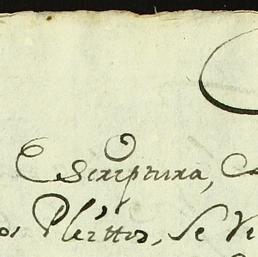 Escriptura,
Pleittos, se